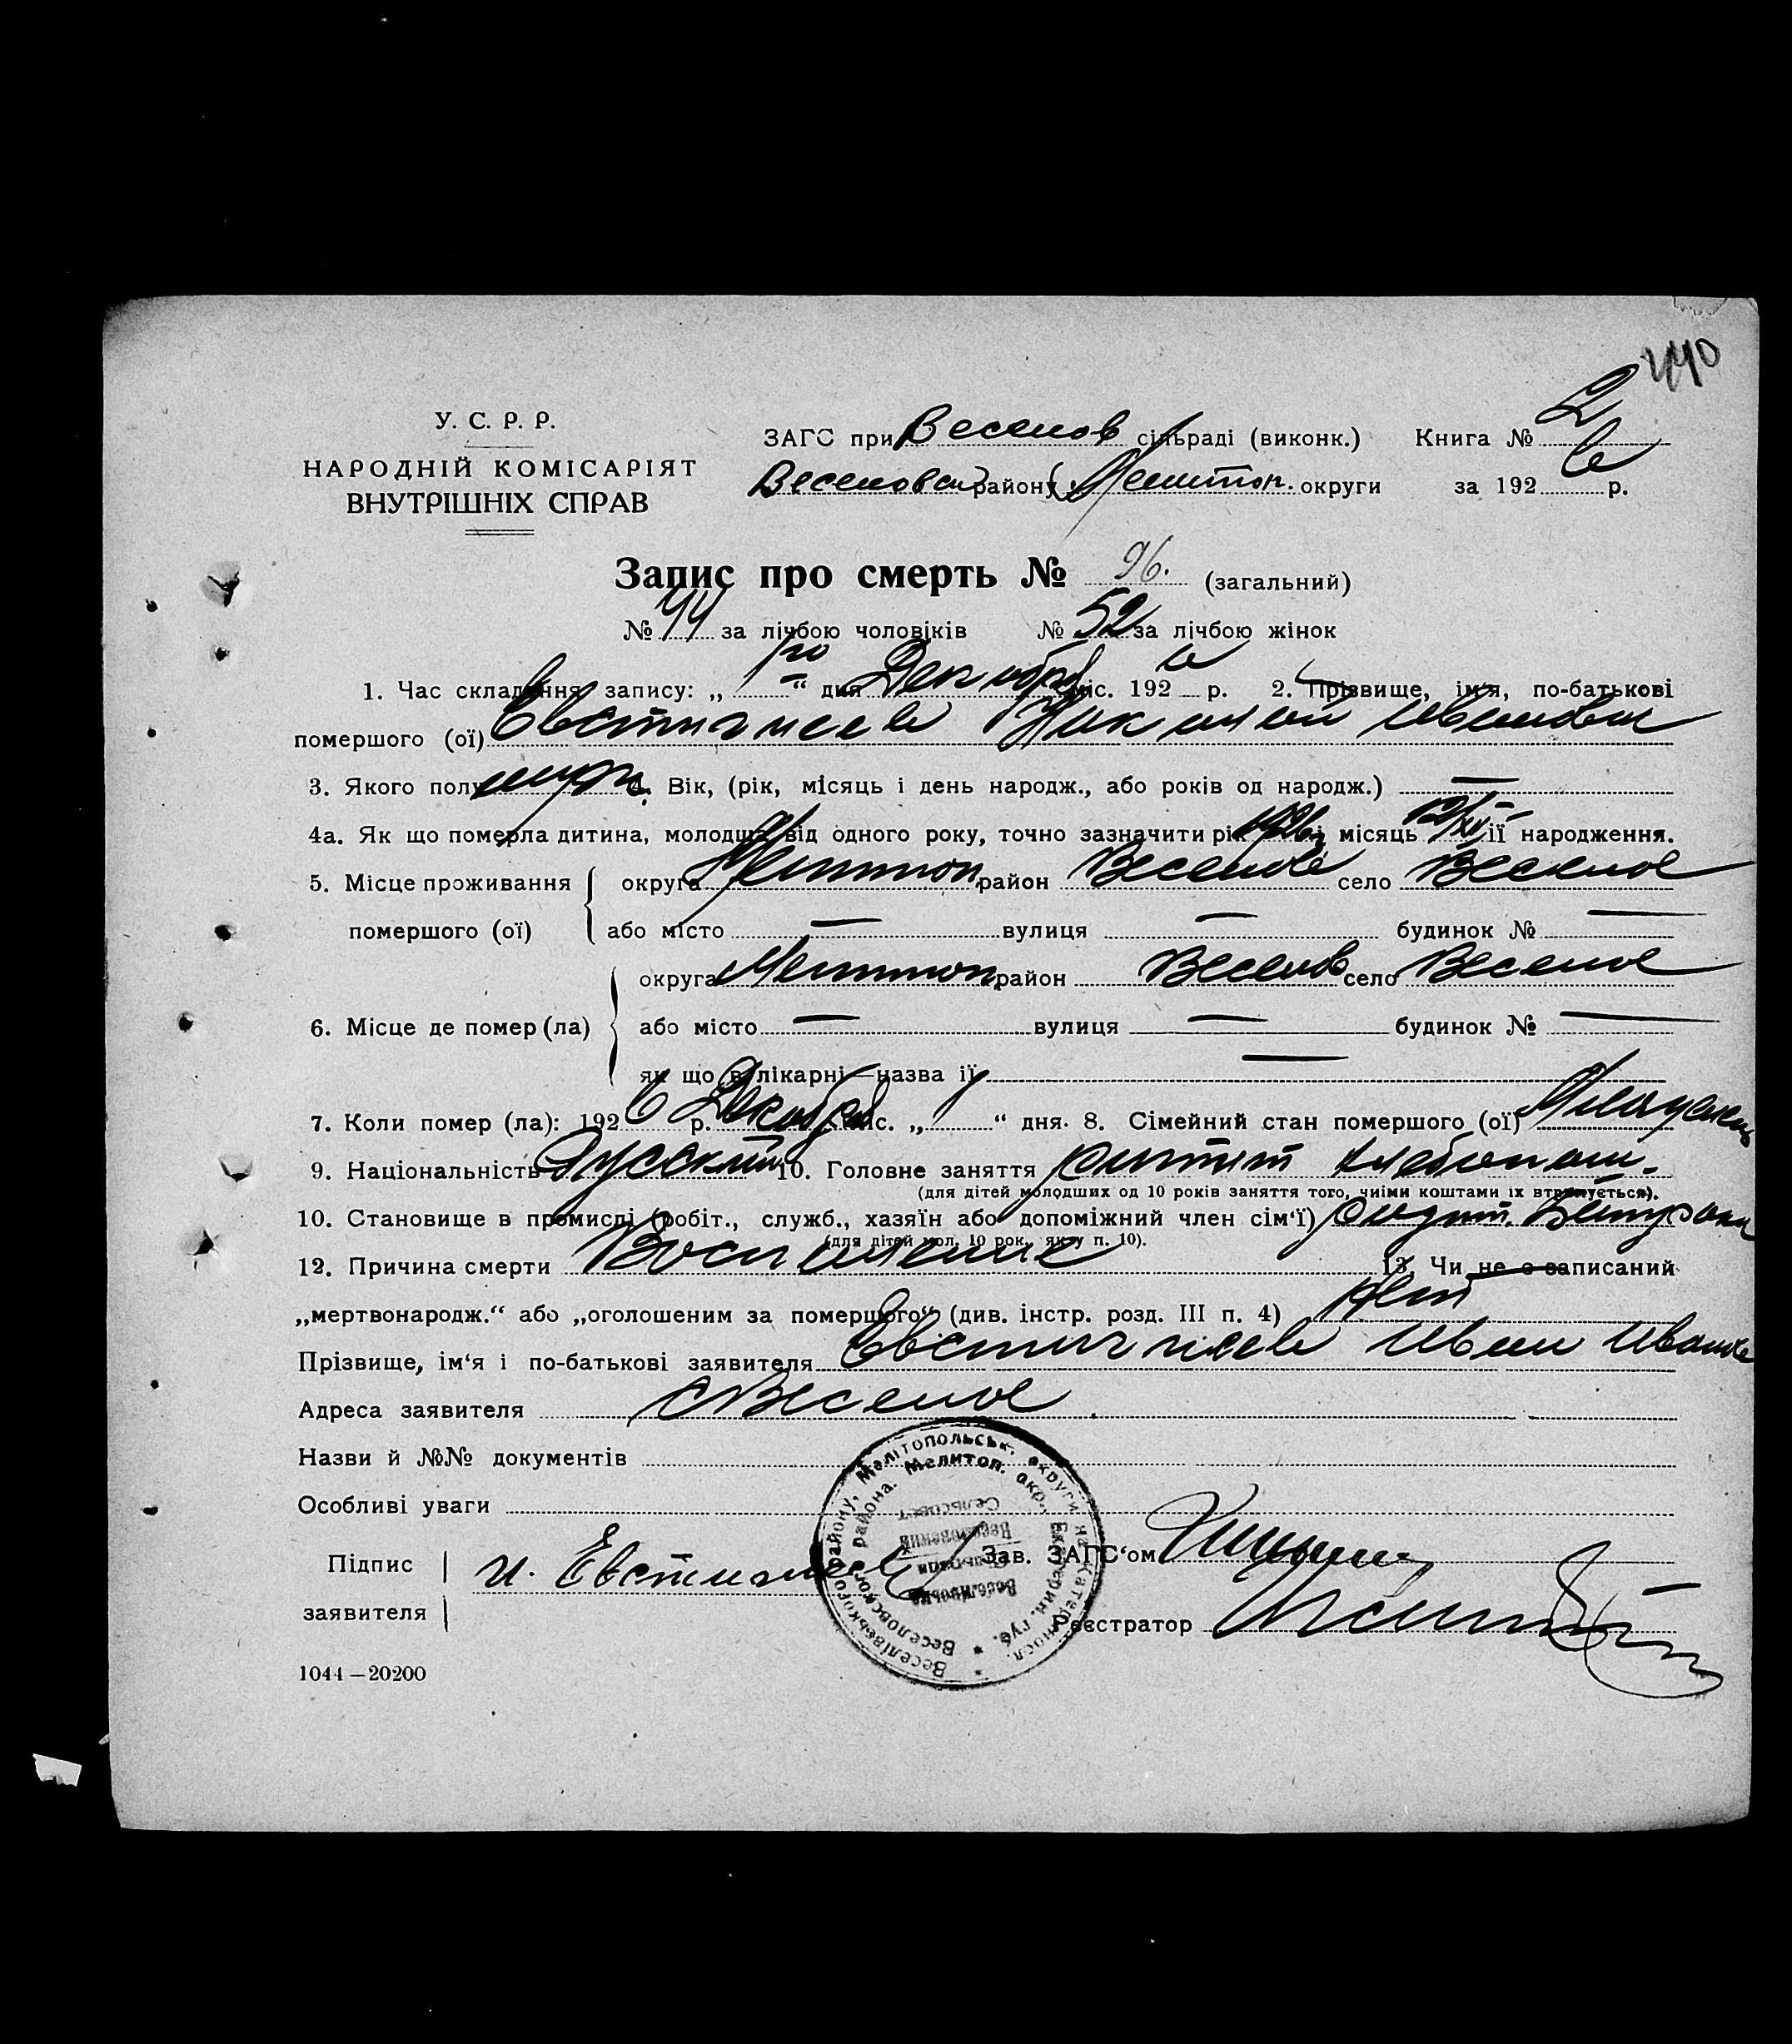 440
У. С. Р. Р.
НАРОДНІЙ КОМІСАРІЯТ
ВНУТРІШНІХ СПРАВ
ЗАГС при Веселов сільраді (виконк.) Книга № 2
Веселовск району Мелитоп. округи за 192 6 р.
Запис про смерть № 96. (загальний)
№ 44 за лічбою чоловіків № 52 за лічбою жінок
1. Час складення запису: „ “ дня Декабря міс. 192 6 р. 2. Прізвище, ім'я, по-батькові
помершого (ої) Евстигнеев Николай Иванович
3. Якого полу муж. 4. Вік, (рік, місяць і день народж., або років од народж.) —
4а. Як що померла дитина, молодша від одного року, точно зазначити рік 1926 і місяць ії народження.
5. Місце проживання округа Мелитоп. район Веселов село Веселое
помершого (ої) або місто — вулиця — будинок № —
округа Мелитоп. район Веселов село Веселое
6. Місце де помер (ла) або місто — вулиця — будинок № —
як що в лікарні—назва ії —
7. Коли помер (ла): 192 6 р. Декабря міс. „ “ дня. 8. Сімейний стан помершого (ої) Младенец
9. Національність Русский 10. Головне заняття хлебопаш.
(для дітей молодших од 10 років заняття того, чиїми коштами їх втримується).
10. Становище в промислі (робіт., служб., хазяїн або допоміжний член сім'ї)
(для дітей мол. 10 рок., як у п. 10).
12. Причина смерти Воспаление 13. Чи не є записаний
„мертвонародж.“ або „оголошеним за помершого“ (див. інстр. розд. III п. 4) Нет
Прізвище, ім'я і по-батькові заявителя Евстигнеев Иван Иванов
Адреса заявителя с Веселое
Назви й №№ документів
Особливі уваги
Підпис заявителя И. Евстигнеев
Зав. ЗАГС'ом
Реєстратор
Веселівського району, Мелітопольськ. округи на Катериносл.
Веселовского района. Мелитоп. окр., Екатерин. губ.
Веселівська
Сільрада
Веселовский
Сельсовет
1044—20200